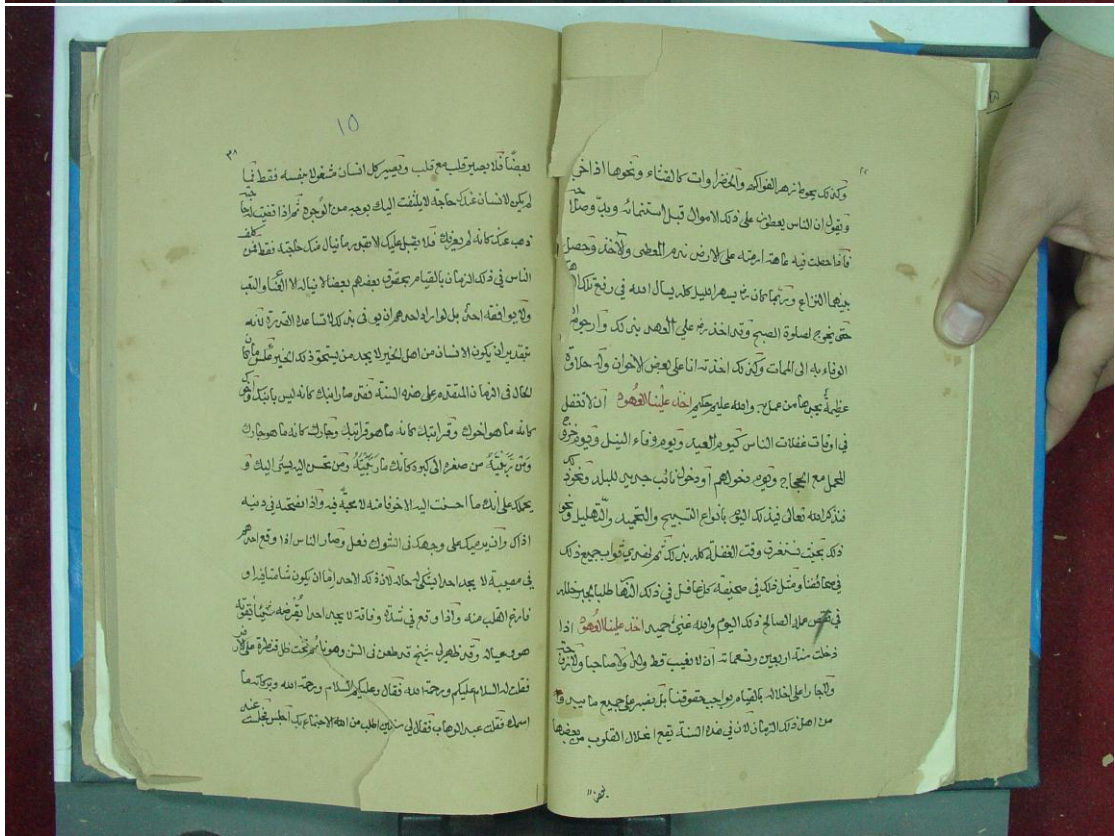 وكذلك يحوط زهر الفواكه والخضراوات كالقثاء ونحوها اذا
ويقول ان الناس يعطون على ذلك الاموال قبل استنمائه
فاذا حصلت فيه عاهة ارضيه على الارض ندم المعطى والآخذ وحصل
بينهما النزاع وربما كان يسهر الليل كله يسال الله في رفع تلك
حتى يخرج لصلوة الصبح وقد اخذ على العهد بذلك وارجو
الوفاء به الى الممات وكذلك اخذته انا على بعض الاخوان وله حلاوة
عظيمة يجدها من عمل به والله عليم حكيم اخذ علينا العهود ان لا نغفل
في اوقات غفلات الناس كيوم العيد ويوم وفاء النيل ويوم
المحمل مع الحجاج ويوم دخولهم او دخول نائب جديد للبلد ونحو ذلك
فنذكر الله تعالى في ذلك اليوم بانواع التسبيح والتحميد والتهليل ونحو
ذلك بحيث نستغرق وقت الغفلة كله بذلك ثم ثواب جميع ذلك
في صحائفنا ومثل ذلك في صحيفة كل غافل في ذلك النهار طلبا لجبر خلله
في نقص عمله الصالح ذلك اليوم والله غني حميد اخذ علينا العهود اذا
دخلت سنة اربعين وتسعمائة ان لا نعيب قط ولدا ولا صاحبا ولا
ولا جارا على اخلاله بالقيام بواجب حقوقنا بل نصبر على جميع ما
من اهل ذلك الزمان لان في هذه السنة يقع انحلال القلوب من بعضها
بعضا
١٥
٣٨
بعضا فلا يصير قلب مع قلب ويصير كل انسان مشغولا بنفسه فقط فما
لم يكن لانسان عندك حاجة لا يلتفت اليك بوجه من الوجوه ثم اذا قضيت له حاجة
ذهب عنك كانه لم يعرفك فلا يقبل عليك الا بقدر ما ينال منك حاجته فقط فمن
الناس في ذلك الزمان بالقيام بحقوق بعضهم بعضا لا يناله الا العنا والتعب
ولا يوافقه احد بل لو اراد احدهم ان يوفي بذلك لا تساعده القدرة لانه
بتقدير ان يكون الانسان من اهل الخير لا يجد من يستحق ذلك الخير عكس ما كان
الحال في الزمان المتقدم على هذه السنة فقد صار ابنك كانه ليس بابنك واخوك
كانه ما هو اخوك وقرابتك كانه ما هو قرابتك وجارك كانه ما هو جارك
ومن ربيته من صغره الى كبره كانك ما ربيته ومن تحسن اليه يسئ اليك و
يحملك على انك ما احسنت اليه الا خوفا منه لا محبة فيه واذا نصحته في دينه
اذاك وان يرميك على وجهك في الشوك فعل وصار الناس اذا وقع احدهم
في مصيبة لا يجد احدا يشكى له حاله لان ذلك الاحد اما ان يكون شامتا فيه او
فارغ القلب منه واذا وقع في شدة وفاقة لا يجد احدا يقرضه شيئا ينفقه
هو وعياله وقد ظهر لي شيخ قد طعن في السن وهو نائم تحت ظل قنطرة
فقلت له السلام عليكم ورحمة الله فقال وعليكم السلام ورحمة الله وبركاته ما
اسمك فقلت عبد الوهاب فقال لي اطلب من الله الاجتماع بك اجلس فجلست عنده